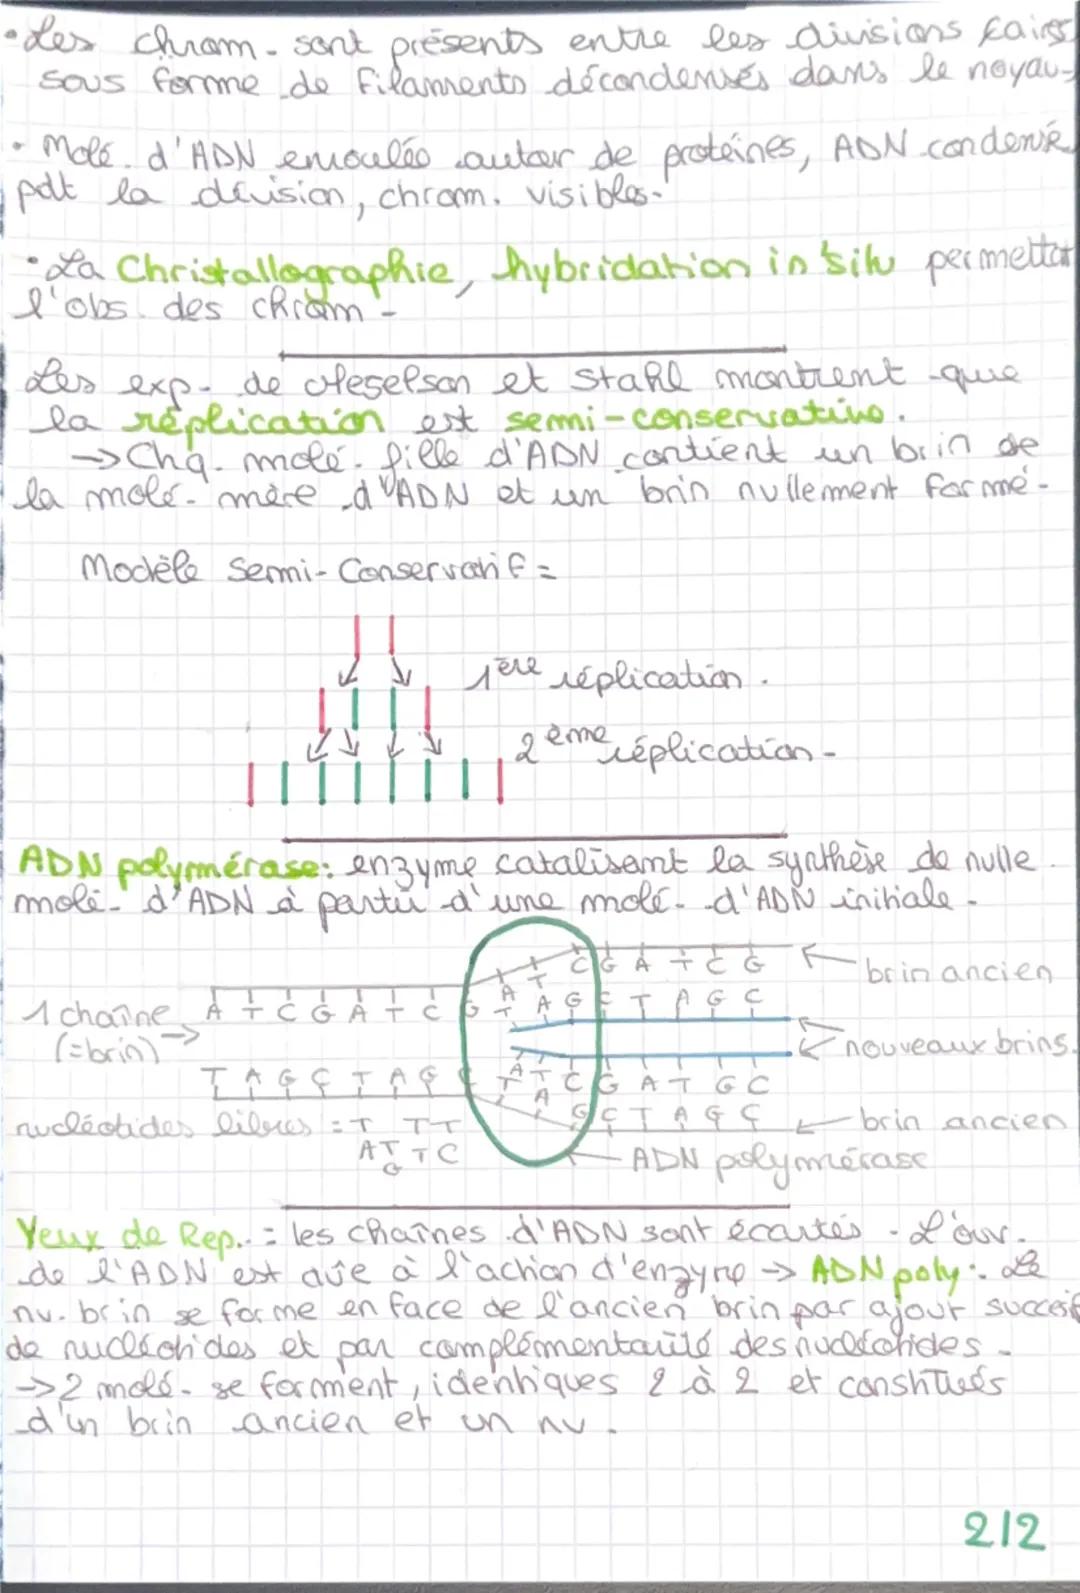 • Les chrom. sont présents entre les divisions caires
sous forme de filaments décondensés dans le noyau-
• Molé. d'ADN enroulée autour de protéines, ADN condensé
pdt la division, chrom. visibles-
• La Christallographie, hybridation in situ permettent
l'obs. des chrom -
Les exp. de Meselson et Stahl montrent que
la réplication est semi-conservative.
→ Chq. molé. fille d'ADN contient un brin de
la molé- mère d'ADN et un brin nvllement formé-
Modèle Semi-Conservatif =
1ère réplication.
2ème réplication-
ADN polymérase: enzyme catalisant la synthèse de nvlle
molé- d'ADN à partir d'une molé- d'ADN initiale-
C G A T C G ← brin ancien
1 chaîne → A T C G A T C G A T A G C T A G C
(=brin) ← nouveaux brins.
T A G C T A G C T A T C G A T G C
A G C T A G C ← brin ancien
nucléotides libres = T T T
A T T C
G
ADN polymérase
Yeux de Rep. = les chaînes d'ADN sont écartés - L'ouv.
de l'ADN est dûe à l'action d'enzyme → ADN poly: Le
nv. brin se forme en face de l'ancien brin par ajout succesif
de nucléotides et par complémentarité des nucléotides-
→ 2 molé- se forment, identiques 2 à 2 et constitués
d'un brin ancien et un nv.
2/2